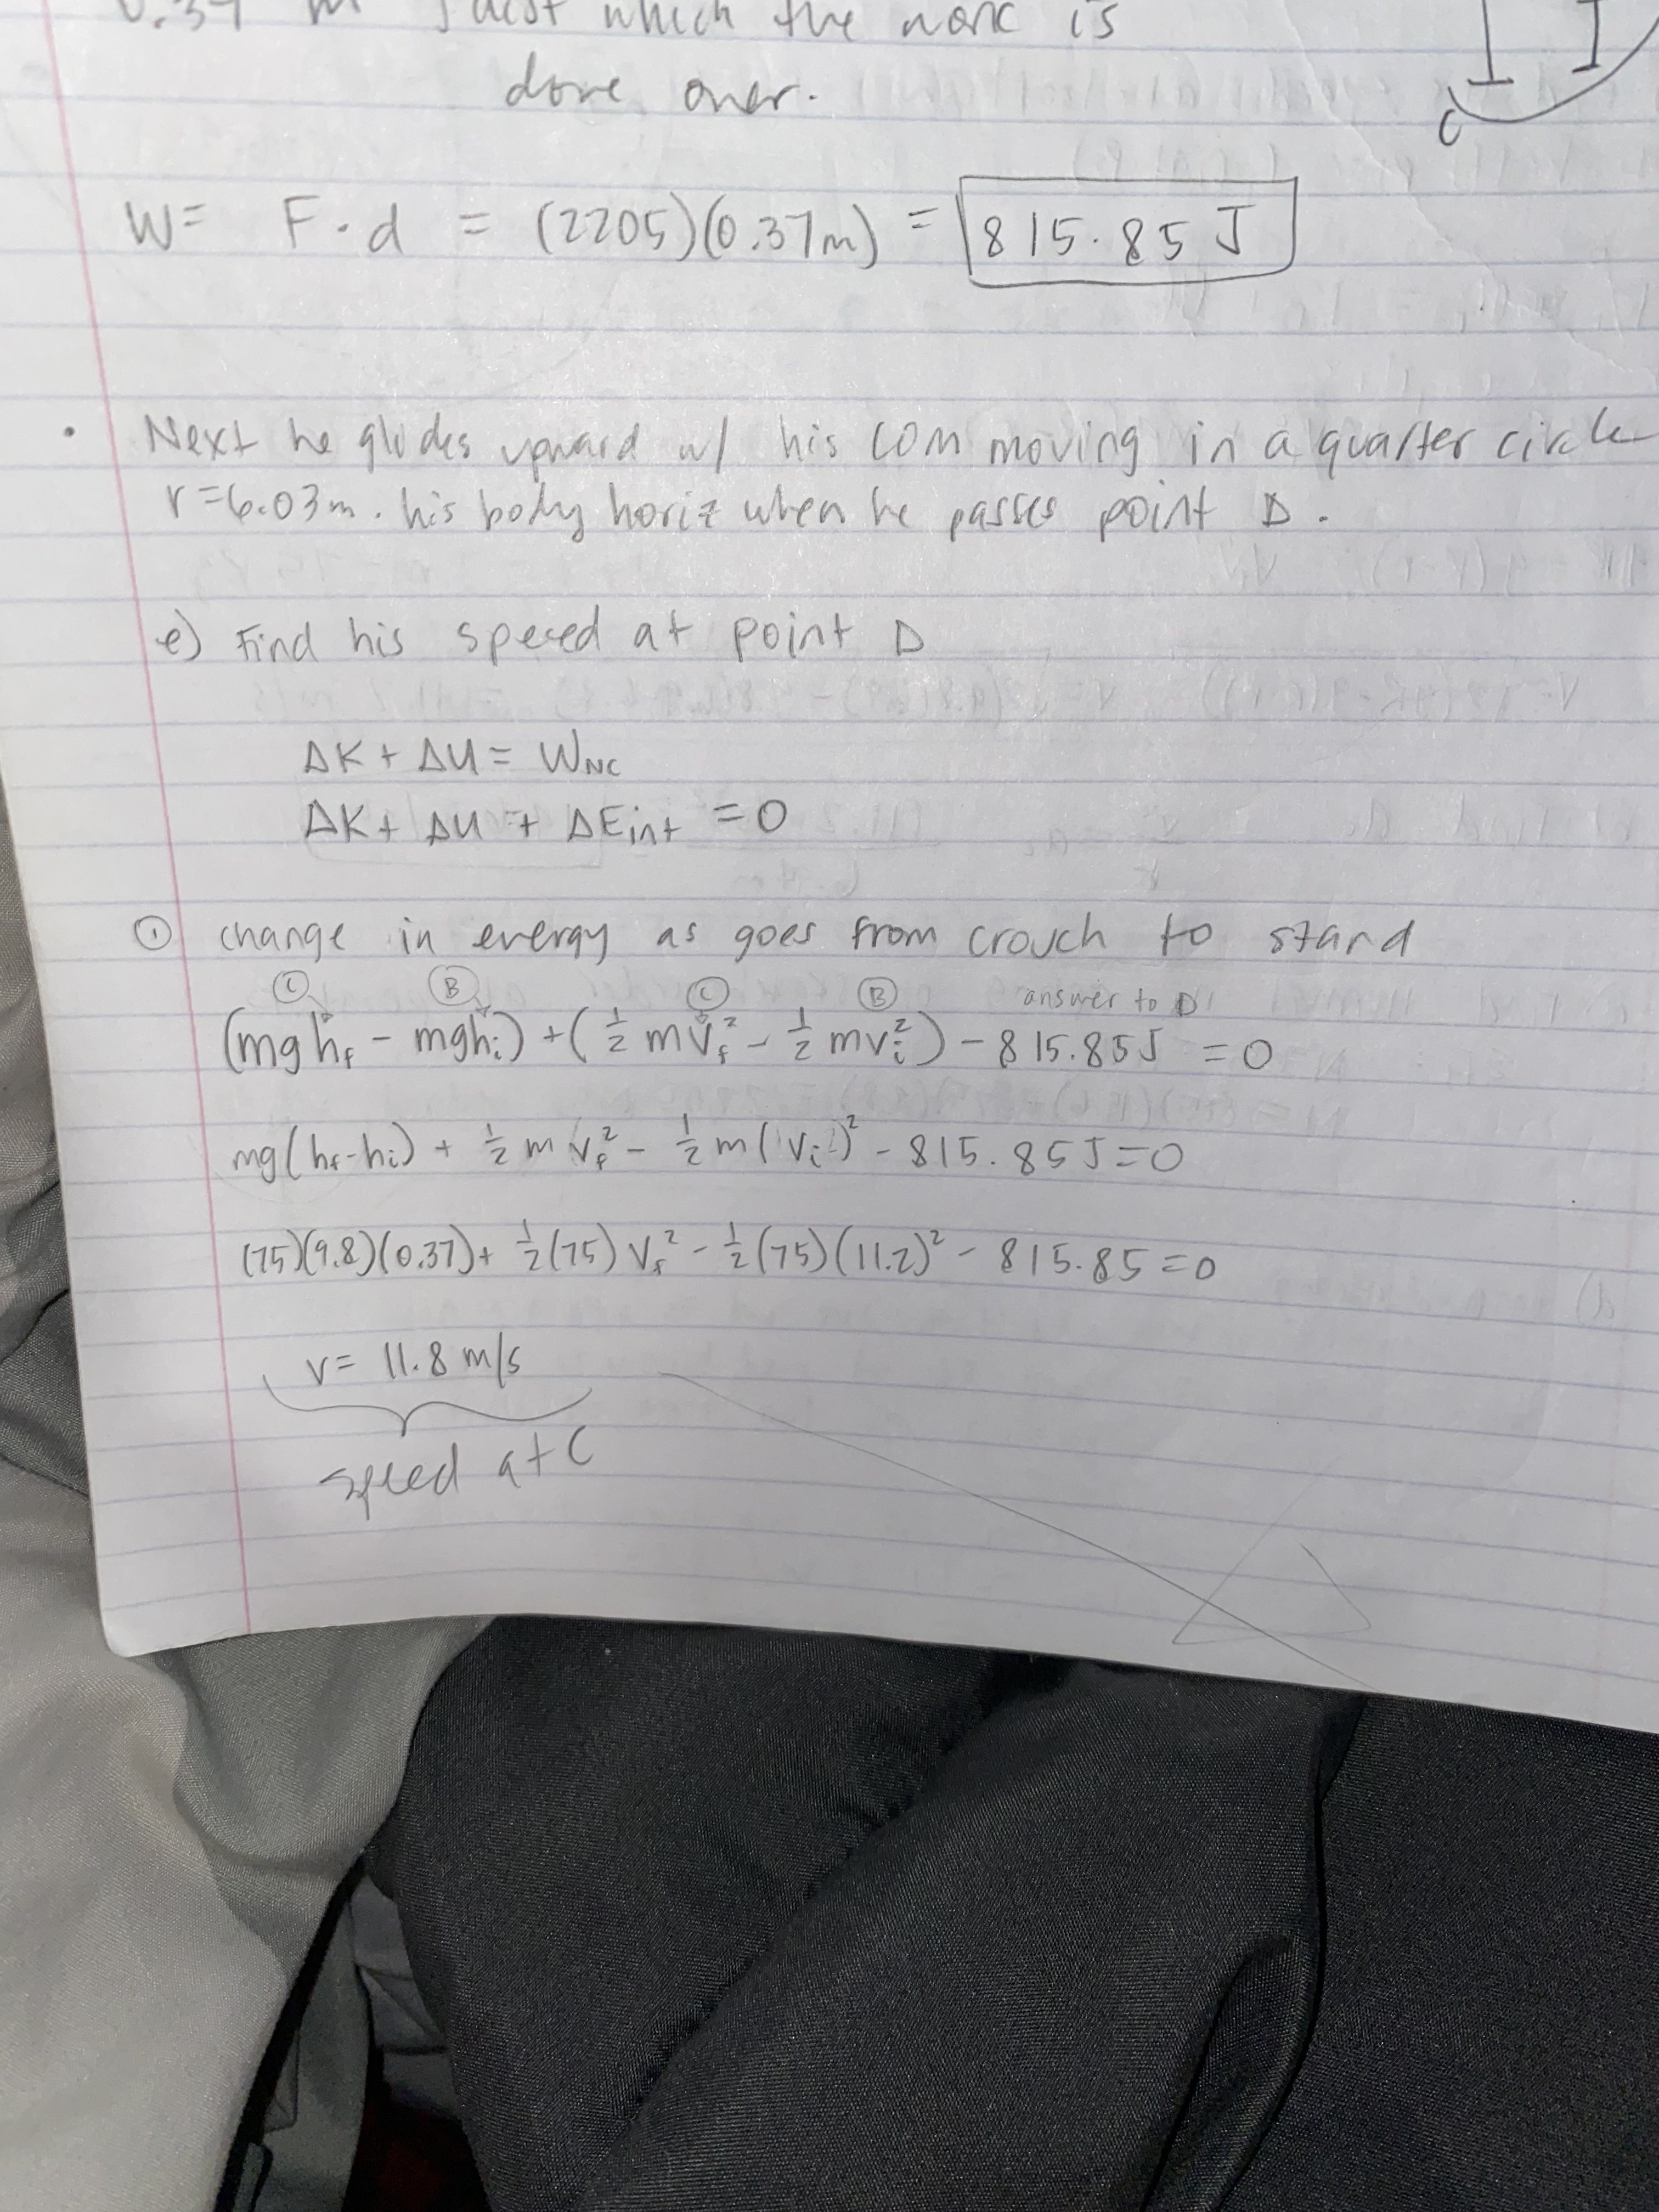 which the work is
done over.
C
W = F · d = (2205)(0.37m) = 815.85 J
• Next he glides upward w/ his COM moving in a quarter circle
r=6.03m. his body horiz when he passes point D.
e) Find his speed at point D
ΔK + ΔU = W_NC
ΔK + ΔU + ΔE_int = 0
① change in energy as goes from crouch to stand
Ⓒ Ⓑ Ⓒ Ⓑ answer to D
(mgh_f - mgh_i) + (½mv_f² - ½mv_i²) - 815.85J = 0
mg(h_f-h_i) + ½mv_f² - ½m(v_i)² - 815.85J=0
(75)(9.8)(0.37)+ ½(75)v_f² - ½(75)(11.2)² - 815.85=0
v= 11.8 m/s
speed at C